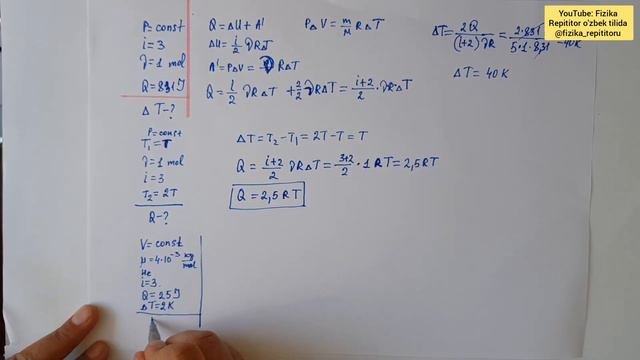 YouTube: Fizika
Repititor o'zbek tilida
@fizika_repititoru
P=const
i=3
ν=1 mol
Q=831J
ΔT-?
Q=ΔU+A'
ΔU=i/2 νRΔT
A'=PΔV=νRΔT
Q=i/2 νRΔT+2/2 νRΔT=i+2/2·νRΔT
PΔV=m/M RΔT
ΔT=2Q/(i+2)νR=2·831/5·1·8,31=40K
ΔT=40K
P=const
T₁=T
ν=1 mol
i=3
T₂=2T
Q-?
ΔT=T₂-T₁=2T-T=T
Q=i+2/2 νRΔT=3+2/2·1RT=2,5RT
Q=2,5RT
V=const
μ=4·10⁻³ kg/mol
He
i=3
Q=25J
ΔT=2K